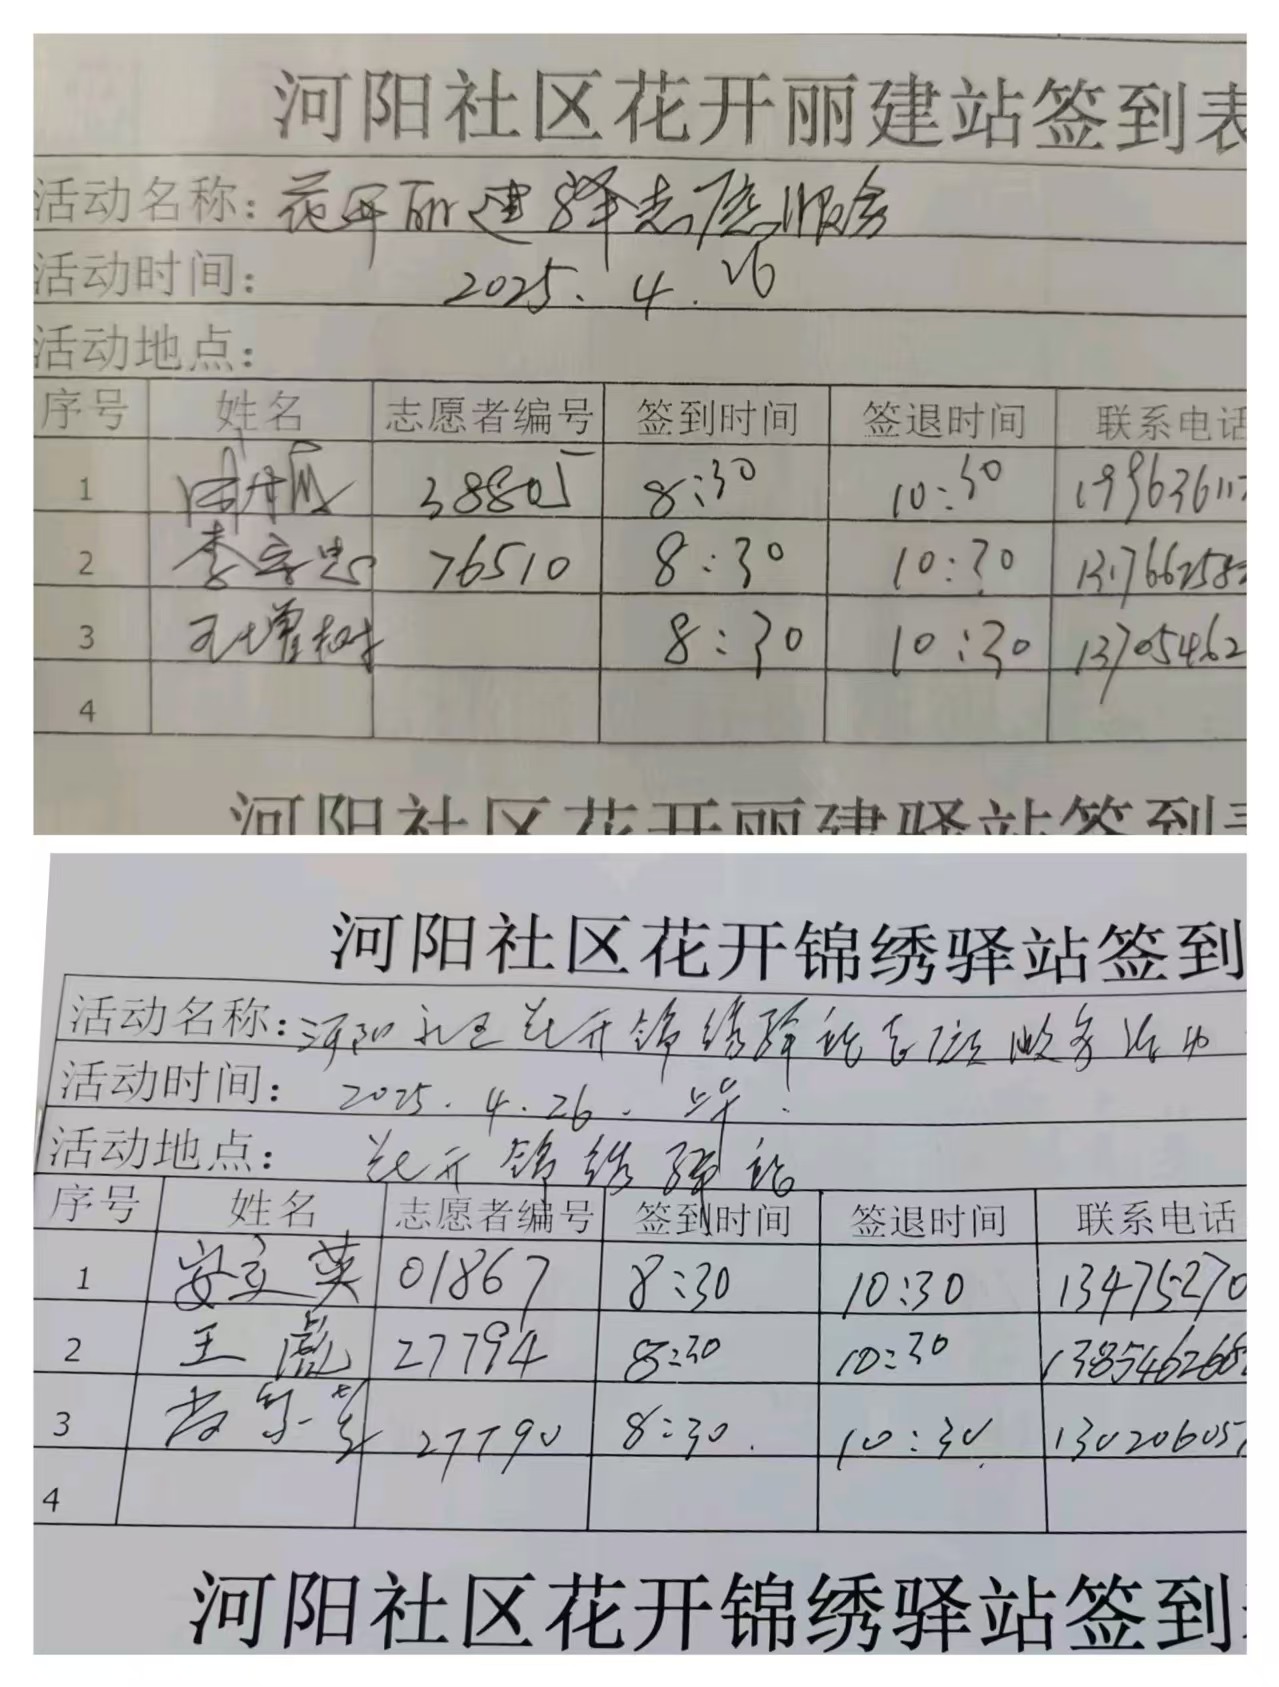 河阳社区花开丽建站签到表
活动名称：花开丽建驿志愿服务
活动时间：2025.4.26
活动地点：
序号 姓名 志愿者编号 签到时间 签退时间 联系电话
1 38805 8:30 10:30 199636117
2 李宗忠 76510 8:30 10:30 137662582
3 王增树 8:30 10:30 13705462
4
河阳社区花开丽建驿站签到表
河阳社区花开锦绣驿站签到
活动名称：河阳社区花开锦绣驿站志愿服务活动
活动时间：2025.4.26.上午.
活动地点：花开锦绣驿站
序号 姓名 志愿者编号 签到时间 签退时间 联系电话
1 安立英 01867 8:30 10:30 13475270
2 王彪 27794 8:30 10:30 1385462682
3 27790 8:30. 10:30. 130206057
4
河阳社区花开锦绣驿站签到